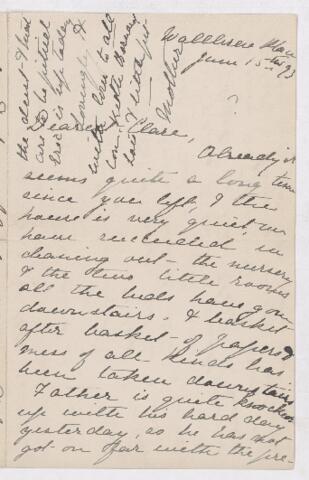 June 15th 93
Dearest Clare,
Already it
seems quite a long time
since you left, & the
house is very quiet. We
have succeeded in
clearing out the nursery
& the two little rooms
all the beds have gone
downstairs, & basket
after basket of papers &
mess of all kinds has
been taken downstairs
Father is quite knocked
up with his hard day
yesterday, so he has not
got on far with the pre-
the
are to be
Eric is up today
&
lovingly
with love to all
Mother